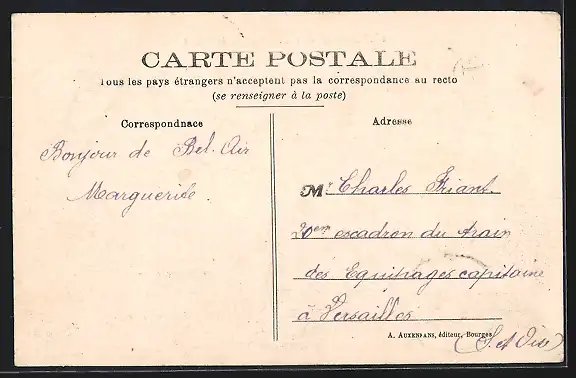 CARTE POSTALE
Tous les pays étrangers n'acceptent pas la correspondance au recto
(se renseigner à la poste)
Correspondnace
Bonjour de Bel-Air
Marguerite.
Adresse
Mr Charles Friant.
20em escadron du train
des Equipages capitaine
à Versailles
(S. et Oise)
A. AUXENFANS, éditeur, Bourges